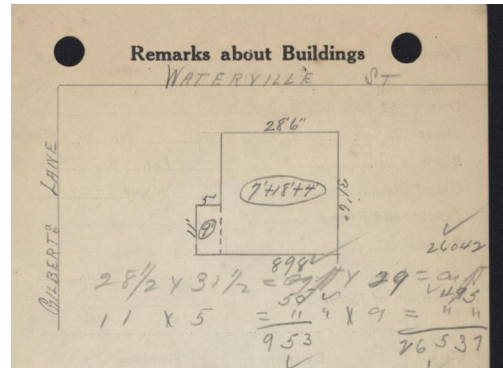 Remarks about Buildings
WATERVILLE ST
GILBERTS LANE
28'6"
7'+18'+4'
31'6"
5'
11'
9'
26042
898
28 1/2 X 31 1/2 = X 29 =
55 495
11 X 5 = " " X 9 = " "
953 26537